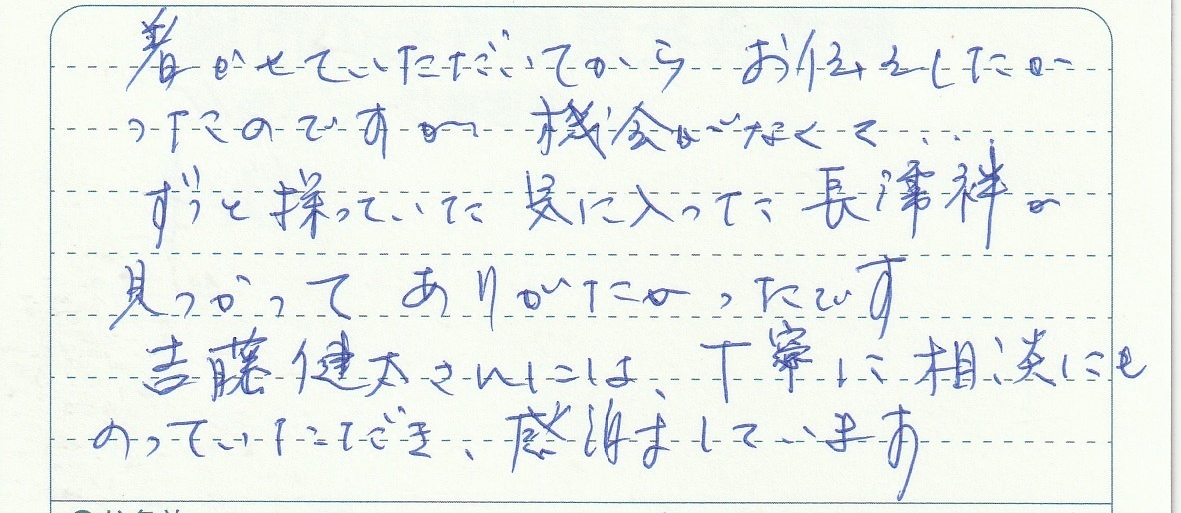 着かせていただいてから お伝えしたか
ったのですが 機会がなくて...
ずっと探っていた 気に入った 長襦袢が
見つかって ありがたかったです
吉藤健太さんには、丁寧に相談にも
のっていただき、感謝しています